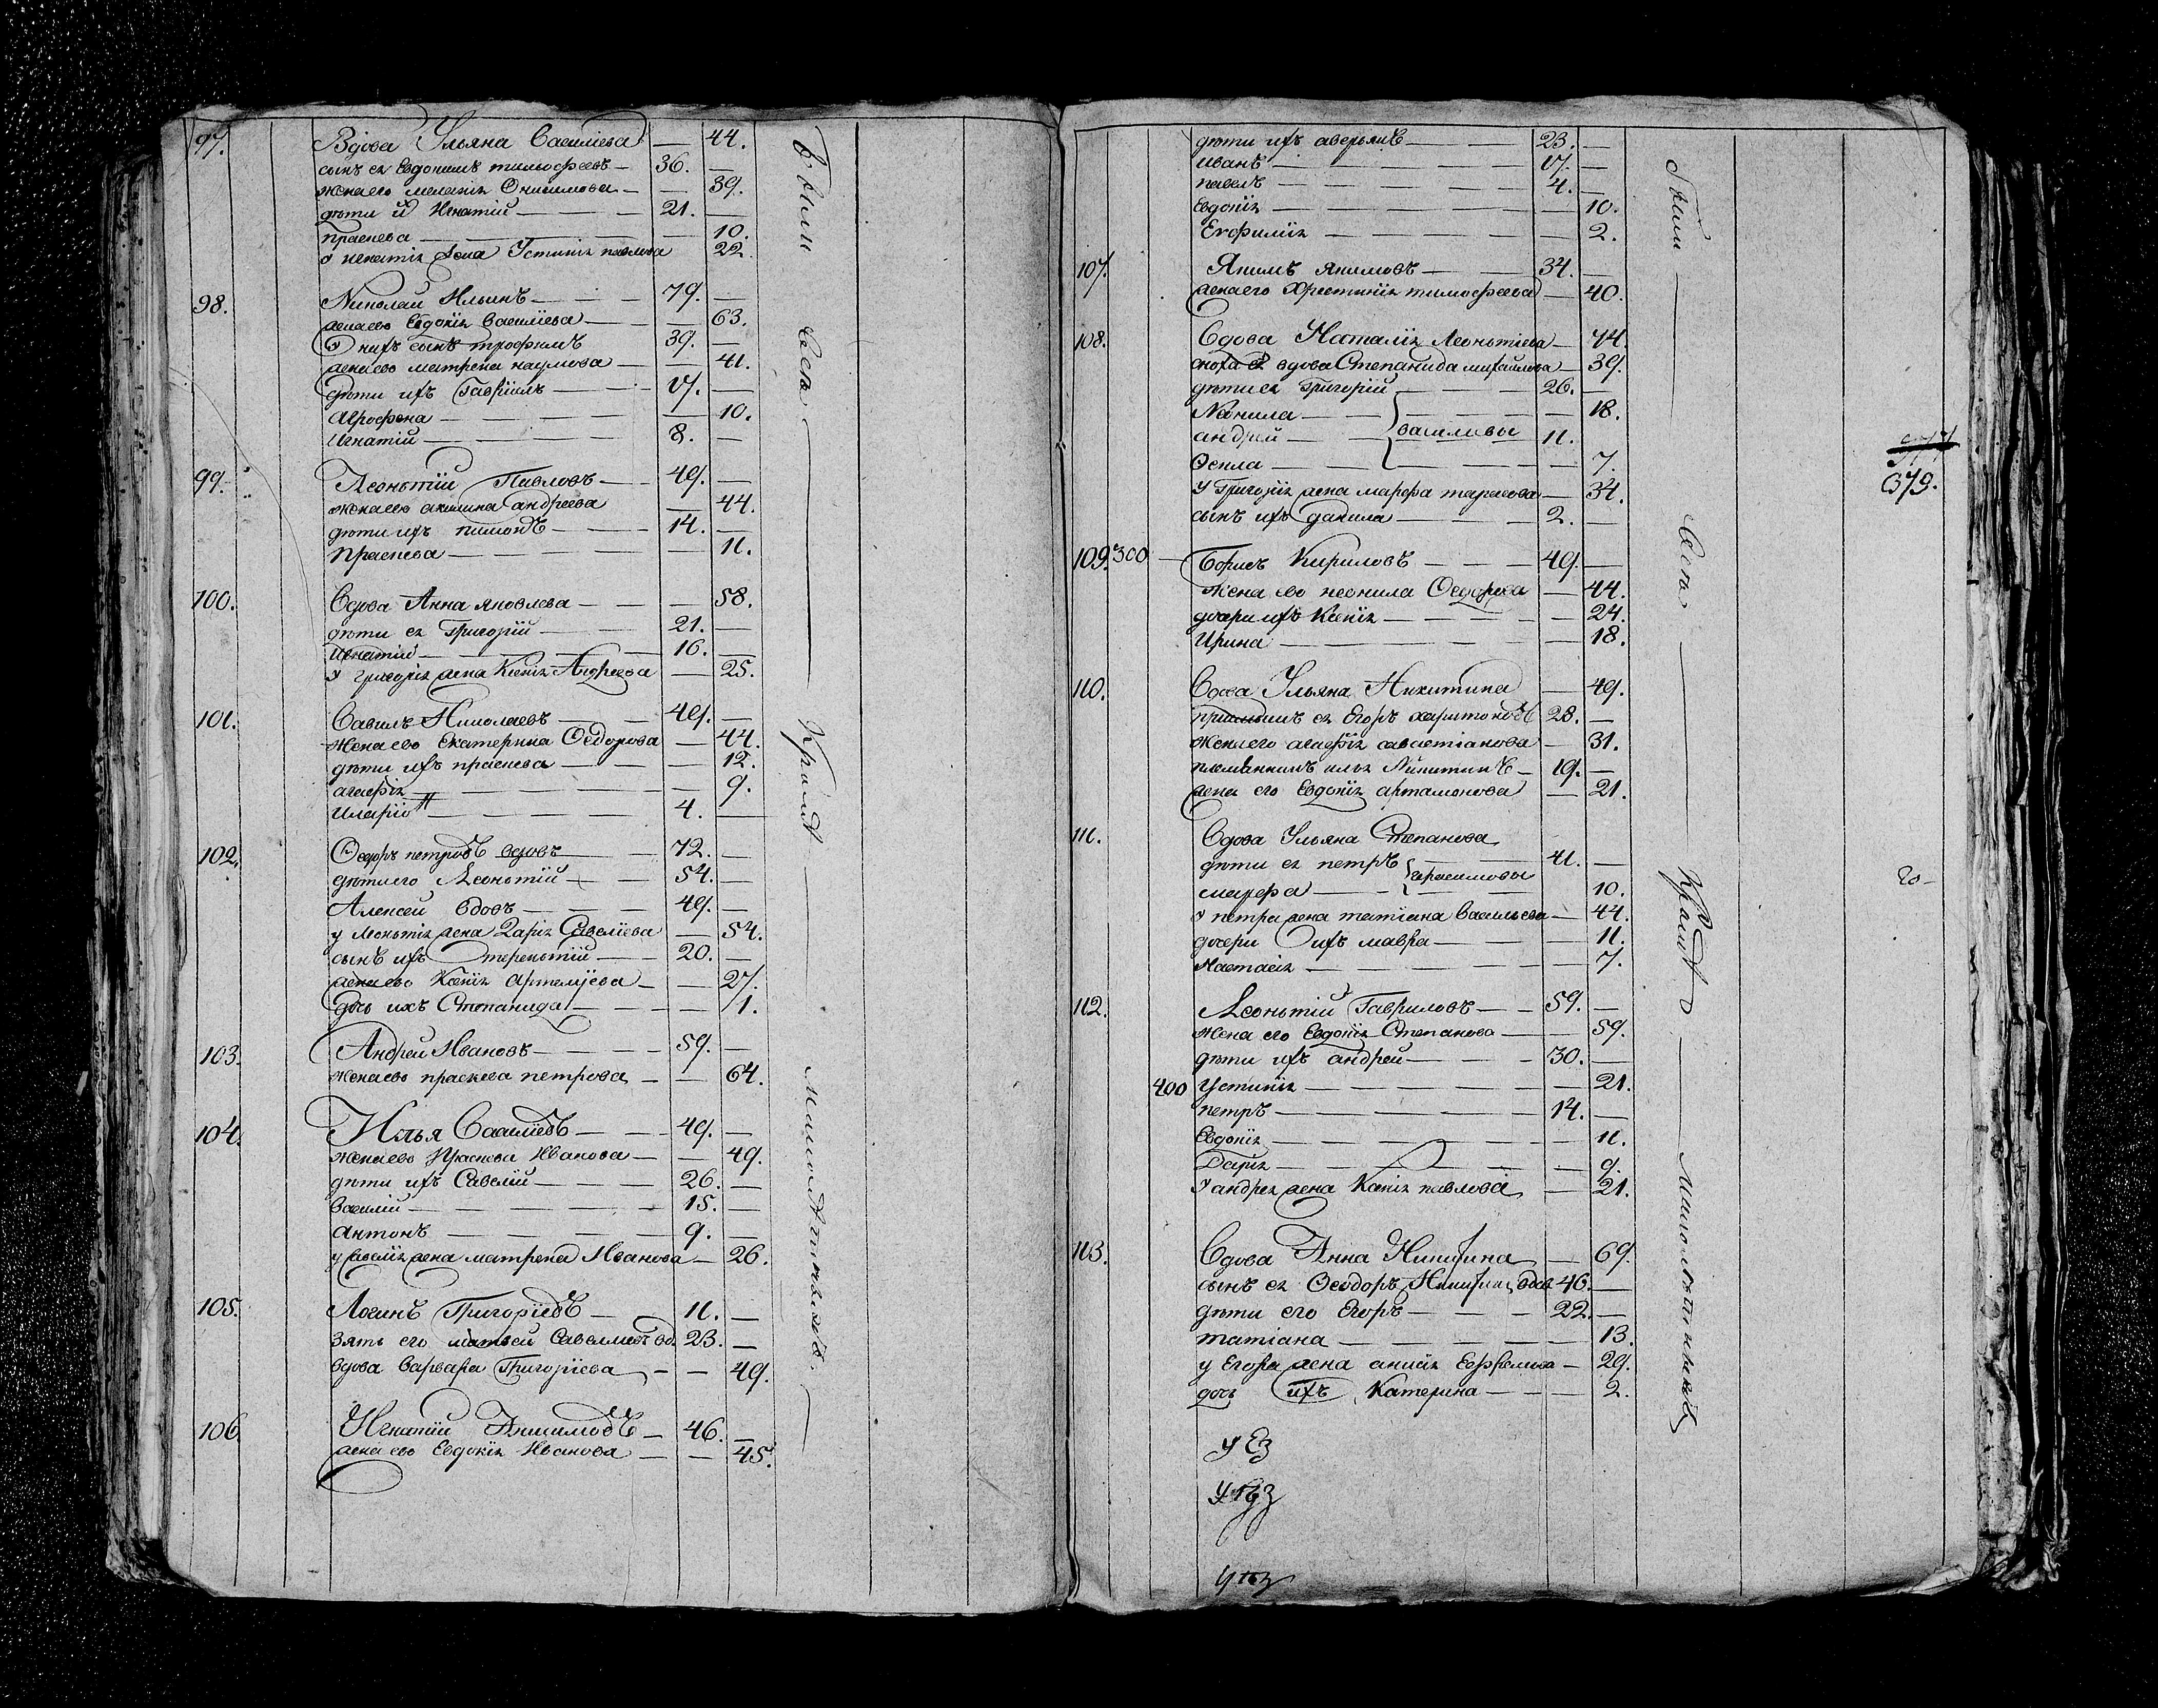 97. Вдова Ульяна Василіева — 44.
сынъ ея Евдокимъ тимофеевъ — 36. —
жена его меланія Онисимова — — 39.
дѣти и Игнатій — 21. —
праскева — 10.
У игнатія жена Устинія павлова 22.
98. Николай Ильинъ — 79. —
жена ево Евдокія Василіева — — 63.
У нихъ сынъ трофимъ 39. —
жена ево матрена наумова — — 41.
дѣти ихъ Гавріилъ — 17. —
Агрофена — — 10.
Игнатій — 8. —
99. Леонътій Павловъ — 49. —
жена ево акилина андреева — 44.
дѣти ихъ пимонъ — 14. —
Праскева — — 11.
100. Вдова Анна яковлева — — 58.
дѣти ея Григорій — 21. —
Игнатій — 16. —
У григорія жена Ксенія Андреева — 25.
101. Савилъ Николаевъ — 49. —
жена ево Екатерина Ѳедорова — 44.
дѣти ихъ праскева — — 12.
агафія — 9.
Иларіонъ — 4. —
102. Ѳедоръ петровъ вдовъ — 72. —
дѣти его Леонътій — 54. —
Алексей вдовъ — 49. —
у Леонътія жена Дарія Савеліева — 54.
сынъ ихъ терентій — 20. —
жена ево Ксенія Артемьева — — 27.
дочь ихъ Степанида — — 1.
103. Андрей Ивановъ — 59. —
жена ево праскева петрова — — 64.
104. Илья Василіевъ — 49. —
жена ево Праскева Иванова — — 49.
дѣти ихъ Савелій — 26. —
Василій — 15. —
Антонъ — 9. —
у Савелія жена матрена Иванова — 26.
105. Логинъ Григоріевъ — 11. —
зять его матвей Савеліевъ вд. 23. —
вдова варвара Григоріева — — 49.
106 Игнатій Анисимовъ — 46. —
жена ево Евдокія Иванова — — 45.
села
Крапи
дѣти ихъ аверьянъ — 23. —
иванъ — 17. —
павелъ — 4. —
Евдокія — — 10.
Егфимія — — 2.
107. Якимъ якимовъ — 34. —
жена его Христинія тимофеева — 40.
108. Вдова Наталія Леонътіева — 44.
сноха ея вдова Степанида михайлова — 39.
дѣти ея Григорій — 26. —
Неонила — — 18.
андрей — василевы 11.
Ѳекла — — 7.
У Григорія жена марфа тарасова — 34.
сынъ ихъ данила — 2. —
109. 300 — Борисъ Кириловъ — 49. —
жена ево неонила Ѳедорова — 44.
дочери ихъ Ксенія — — 24.
Ирина — 18.
110. Вдова Ульяна Никитина — 49.
приимышъ ея Егоръ харитоновъ 28. —
жена его агафія савастіанова — 31.
племянникъ илья Никитинъ — 19. —
жена его Евдокія артамонова — 21.
111. Вдова Ульяна Степанова
дѣти ея петръ — 41. —
марфа — герасимовы 10.
У петра жена татіана Васильева — 44.
дочери ихъ мавра — — 11.
Настасія — — 7.
112. Леонътій Гавриловъ — 59. —
жена его Евдокія Степанова — — 59.
дѣти ихъ андрей — 30. —
400 Устинія — — 21.
петръ — 14. —
Евдокія — — 11.
Дарія — — 9.
У андрея жена Ксенія павлова — 21.
113. Вдова Анна Никифина — 69.
сынъ ея Ѳеодоръ Никифи вдов 46. —
дѣти его Егоръ — 22. —
татіана — — 13.
у Егора жена анисія Ефремова — 29.
дочь ихъ Катерина — — 2.
у Ез
уѣз
уѣз
Села
379.
20 —